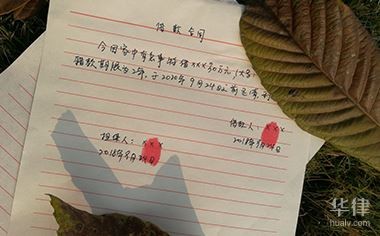 借款合同
今因家中有急事特借XXX30万元(大写
借款期限为2年,于2020年9月24日之前还清,
借款人:XXX
2018年9月24日
担保人:XXX
2018年9月24日
华律
hualv.com